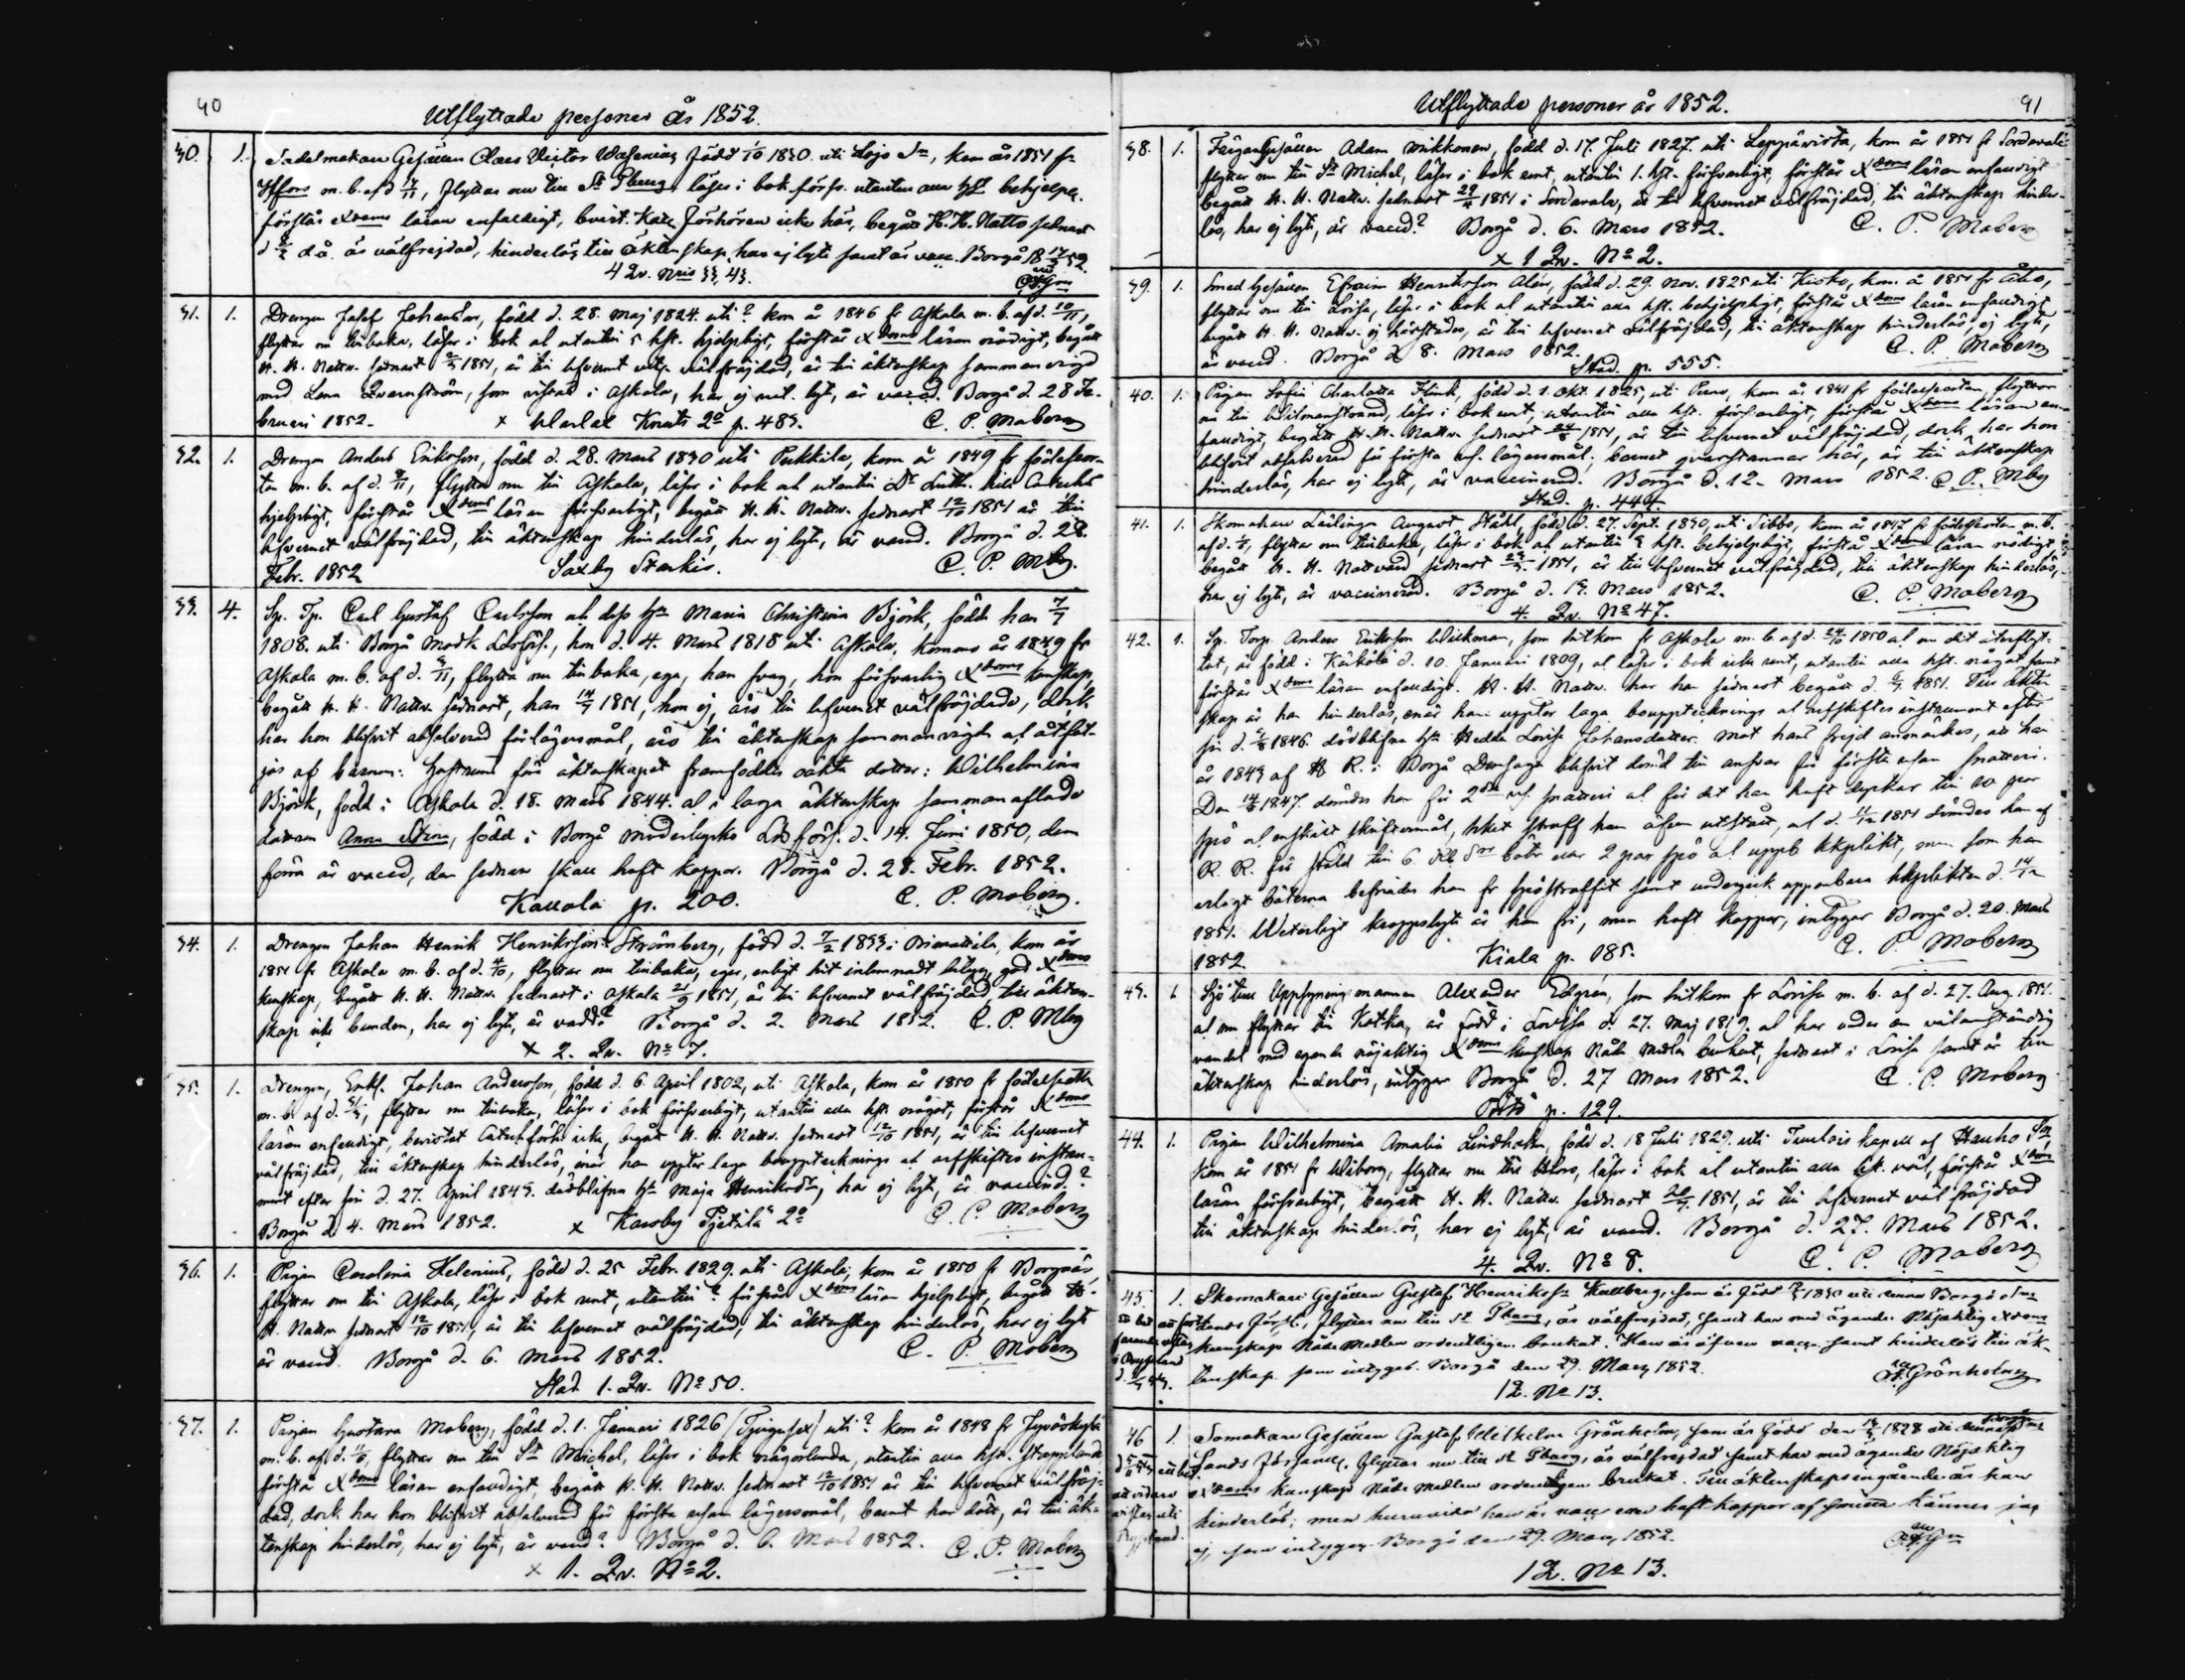 40
Utflyttade personer år 1852.
30. 1. Sadelmakare Gesällen Claes Victor Wasenius född 1/10 1830 uti Lojo Sn, kom år 1851 fr
Hfors m. b. af d. 4/11, flyttar nu till St Pburg, läser i bok förfs. utantill behjelpl.
förstår Xdoms läran enfaldigt, bevist. Kate. Förhören icke här, begått H. H. Nattv sednast
d. d. å. är välfrejdad, hinderlös till äktenskap, har ej lyte samt är vacc. Borgå 18 52.
4 Qv. Nris 33, 43.
31. 1. Drengen Josef Johansson, född d. 28. Maj 1824. uti? kom år 1846 fr Askola m. b. af d. 10/11,
flyttar nu tillbaka, läser i bok och utantill 5 hst. hjelpligt, förstår Xdoms läran nödigt, begått
H. H. Nattv. sednast 1851, är till lefvernet välfräjdad, är till äktenskap sammanvigd
med Lena Qvarnström, som vistas i Askola, har ej lyte, är vaccd. Borgå d. 28 Fe-
bruari 1852. x Knuts 2o p. 483. C. P. Moberg
32. 1. Drengen Anders Eriksson, född d. 28. Mars 1830 uti Pukkila, kom år 1849 fr födelseor-
ten m. b. af d. 8/11, flyttar nu till Askola, läser i bok och utantill Dr Luth. lilla Cateches
hjelpligt, förstår Xdoms läran försvarligt, begått H. H. Nattv. sednast 12/10 1851 är till
lefvernet välfräjdad, till äktenskap hinderlös, har ej lyte, är vaccd. Borgå d. 28.
Febr. 1852 Saxby Starkis. C. P. Mbg.
33. 4. Sp. Tp. Carl Gustaf Carlsson och dess hu Maria Christina Björk, född han 7/7
1808. uti Borgå modk Ldsförs., hon d. 4. Mars 1818 uti Askola, komma år 1849 fr
Askola m. b. af d. 4/11, flytta nu tillbaka, ega, han svag, hon försvarlig Xdoms kunskap,
begått H. H. Nattv. sednast, han 14/7 1851, hon ej, äro till lefvernet välfräjdade, dock
har hon blifvit absolverad för lägersmål, äro till äktenskap sammanvigde och åtföl-
jas af barnen: hustruns före äktenskapet framfödde oäkta dotter: Wilhelmina
Björk, född i Askola d. 18. Mars 1844. och i laga äktenskap sammanaflade
dottren Anna Stina, född i Borgå moderkyrko Ldsförs. d. 14. Juni 1850, den
förra är vaccd, den sednare skall haft koppor. Borgå d. 28. Febr. 1852.
Kallola p. 200. C. P. Moberg.
34. 1. Drengen Johan Henrik Henriksson Strömberg, född d. 7/2 1833 i Orimattila, kom år
1851 fr Askola m. b. af d. 4/10, flyttar nu tillbaka, eger, enligt hit inlemnadt betyg, god Xdoms
kunskap, begått H. H. Nattv. sednast i Askola 21/9 1851, är till lefvernet välfräjdad, till äkten-
skap icke bunden, har ej lyte, är vaccd? Borgå d. 2. Mars 1852. C. P. Mbg
x 2. Qv. No 7.
35. 1. Drengen, Enkl. Johan Andersson, född d. 6. April 1802, uti Askola, kom år 1850 fr födelseorten
m. b. af d. flyttar nu tillbaka, läser i bok försvarligt, utantill alla hst. något, förstår Xdoms
läran enfaldigt, bevistat Catechförh icke, begått H. H. Nattv. sednast 12/10 1851, är till lefvernet
välfräjdad, till äktenskap hinderlös, enär han uppter laga bouppteknings och arfskiftes instru-
ment efter sin d. 27. April 1843. dödblifna hu Maja Henriksdr, har ej lyte, är vaccined?
Borgå d. 4. Mars 1852. x Karsby Pjetilä 2o C. P. Moberg
36. 1. Pigan Carolina Helenius, född d. 25 Febr. 1829. uti Askola, kom år 1850 fr Borgnäs,
flyttar nu till Askola, läser i bok rent, utantill? förstår Xdoms läran hjelpligt, begått H.
H. Nattv. sednast 12/10 1851, är till lefvernet välfräjdad, till äktenskap hinderlös, har ej lyte
är vaccd. Borgå d. 6. Mars 1852. C. P. Moberg
Stad 1. Qv. No 50.
37. 1. Pigan Gustava Moberg, född d. 1. Januari 1826 (Tjugusex) uti? kom år 1848 fr Jyväskylä
m. b. af d. 11/6, flyttar nu till St Michel, läser i bok någorlunda, utantill alla hst. stamplande
förstår Xdoms läran enfaldigt, begått H. H. Nattv. sednast 12/10 1851 är till lefvernet välfräj-
dad, dock har hon blifvit absolverad för första resan lägersmål, barnet har dött, är till äk-
tenskap hinderlös, har ej lyte, är vaccd? Borgå d. 6. Mars 1852. C. P. Moberg
x 1. Qv. No 2.
Utflyttade personer år 1852.
41
38. 1. Färgare Gesällen Adam Mikkonen, född d. 17. Juli 1827. uti Leppävirta, kom år 1851 fr Sordavala
flyttar nu till St Michel, läser i bok rent, utantill 1. hst. försvarligt, förstår Xdoms läran enfaldigt
begått H. H. Nattv. sednast 1851 i Sordavala, är till lefvernet välfräjdad, till äktenskap hinder-
lös, har ej lyte, är vaccd? Borgå d. 6. Mars 1852. C. P. Moberg
x 1 Qv. No 2.
39. 1. Smed Gesällen Efraim Henriksson Alén, född d. 29. Nov. 1825 uti Kisko, kom år 1851 fr Åbo,
flyttar nu till Lovisa, läser i bok och utantill alla hst. behjelpligt, förstår Xdoms läran enfaldigt
begått H. H. Nattv. ej härstädes, är till lefvernet välfräjdad, till äktenskap hinderlös, ej lyte,
är vaccd. Borgå d. 8. Mars 1852. C. P. Moberg
Stad. p. 555.
40. 1. Pigan Sofia Charlotta Flink, född d. 1. Okt. 1825, uti Perno, kom år 1841 fr födelseorten, flyttar
nu till Wilmanstrand, läser i bok rent, utantill alla hst. försvarligt, förstår Xdoms läran en-
faldigt, begått H. H. Nattv. sednast 24/8 1851, är till lefvernet välfräjdad, dock har hon
blifvit absolverad för första res. lägersmål; barnet qvarstannar här, är till äktenskap
hinderlös, har ej lyte, är vaccinerad. Borgå d. 12. Mars 1852. C. P. Mbg
Stad. p. 444.
41. 1. Skomakare Lärlingen August Ståhl, född d. 27. Sept. 1830, uti Sibbo, kom år 1847 fr födelseorten m. b.
af d. flyttar nu tillbaka, läser i bok och utantill 3 hst. behjelpligt, förstår Xdoms läran nödigt,
begått H. H. Nattvard sednast 1851, är till lefvernet välfräjdad, till äktenskap hinderlös,
har ej lyte, är vaccinerad. Borgå d. 13. Mars 1852. C. P. Moberg
4. Qv. No 47.
42. 1. Sp. Torp. Anders Eriksson Wickman, som hitkom fr Askola m. b. af d. 24/10 1850 och nu dit återflyt-
tat, är född i Kärkölä d. 10. Januari 1809, och läser i bok icke rent, utantill alla hst. något, samt
förstår Xdoms läran enfaldigt. H. H. Nattv. har han sednast begått d. 1851. Till äkten-
skap är han hinderlös, enär han uppter laga bouppteknings och arfskiftes instrument efter
sin d. 1846. dödblifna hu Hedda Lovisa Johansdotter. Mot hans frejd anmärkes, att han
år 1843 af H R. i Borgå Domsaga blifvit dömd till ansvar för första resan snatteri.
Den 1847. dömdes han för 2dra res. snatteri och för det han haft dyrkar till 10 par
spö och enskilt skriftermål, hket straff han äfven utstått, och d. 11/12 1851 dömdes han af
R. R. för stöld till 6. Rub. Smt böter eller 2 par spö och uppb. kkplikt, men som han
erlagt böterna befriades han fr spöstraffet samt undergick uppenbara kkplikten d. 14/12
1851. Weterligt kroppslyte är han fri, men haft koppor, intygar Borgå d. 20. Mars
1852 Kiala p. 185. C. P. Moberg
43. 1 Sjötull Uppsyningsmannen Alexander Edgrén, som hitkom fr Lovisa m. b. af d. 27. Aug. 1851.
och nu flyttar till Kotka, är född i Lovisa d. 27. Maj 1819. och har under en välanständig
vandel med egande nöjaktig Xdoms kunskap Nåde medlen brukat, sednast i Lovisa samt är till
äktenskap hinderlös, intygar Borgå d. 27 Mars 1852. C. P. Moberg
p. 129.
44. 1. Pigan Wilhelmina Amalia Lindholm, född d. 18 Juli 1829. uti Tuulois kapell af Hauho Sn,
kom år 1851 fr Wiborg, flyttar nu till läser i bok och utantill alla hst. väl, förstår Xdoms
läran försvarligt, begått H. H. Nattv. sednast 1851, är till lefvernet välfräjdad
till äktenskap hinderlös, har ej lyte, är vaccd. Borgå d. 27. Mars 1852.
4. Qv. No 8. C. P. Moberg
45. 1. Skomakare Gesällen Gustaf Henriksson Kullberg, som är född 1830 uti denna Borgå
Lands Förs., flyttar nu till St Pburg, är välfrejdad, samt har med ägande Nöjaktig Xdoms
kunskap Nåde Medlen ordentligen brukat. Han är äfven vacc. samt hinderlös till äk-
tenskap som intygas. Borgå den 29. Mars 1852. Grönholm
1 Q. No 13.
46 1. Somakare Gesällen Gustaf Wilhelm Grönholm, som är född den 1828 uti denna
Lands Församl. flyttar nu till St Pburg, är välfrejdad samt har med ägande Nöjaktig
Xdoms kunskap Nåde medlen ordentligen brukat. Till äktenskaps ingående är han
hinderlös; men huruvida han är vacc eller haft koppor af känner jag
ej, som intygas Borgå den 29. Mars 1852.
1 Q. No 13.